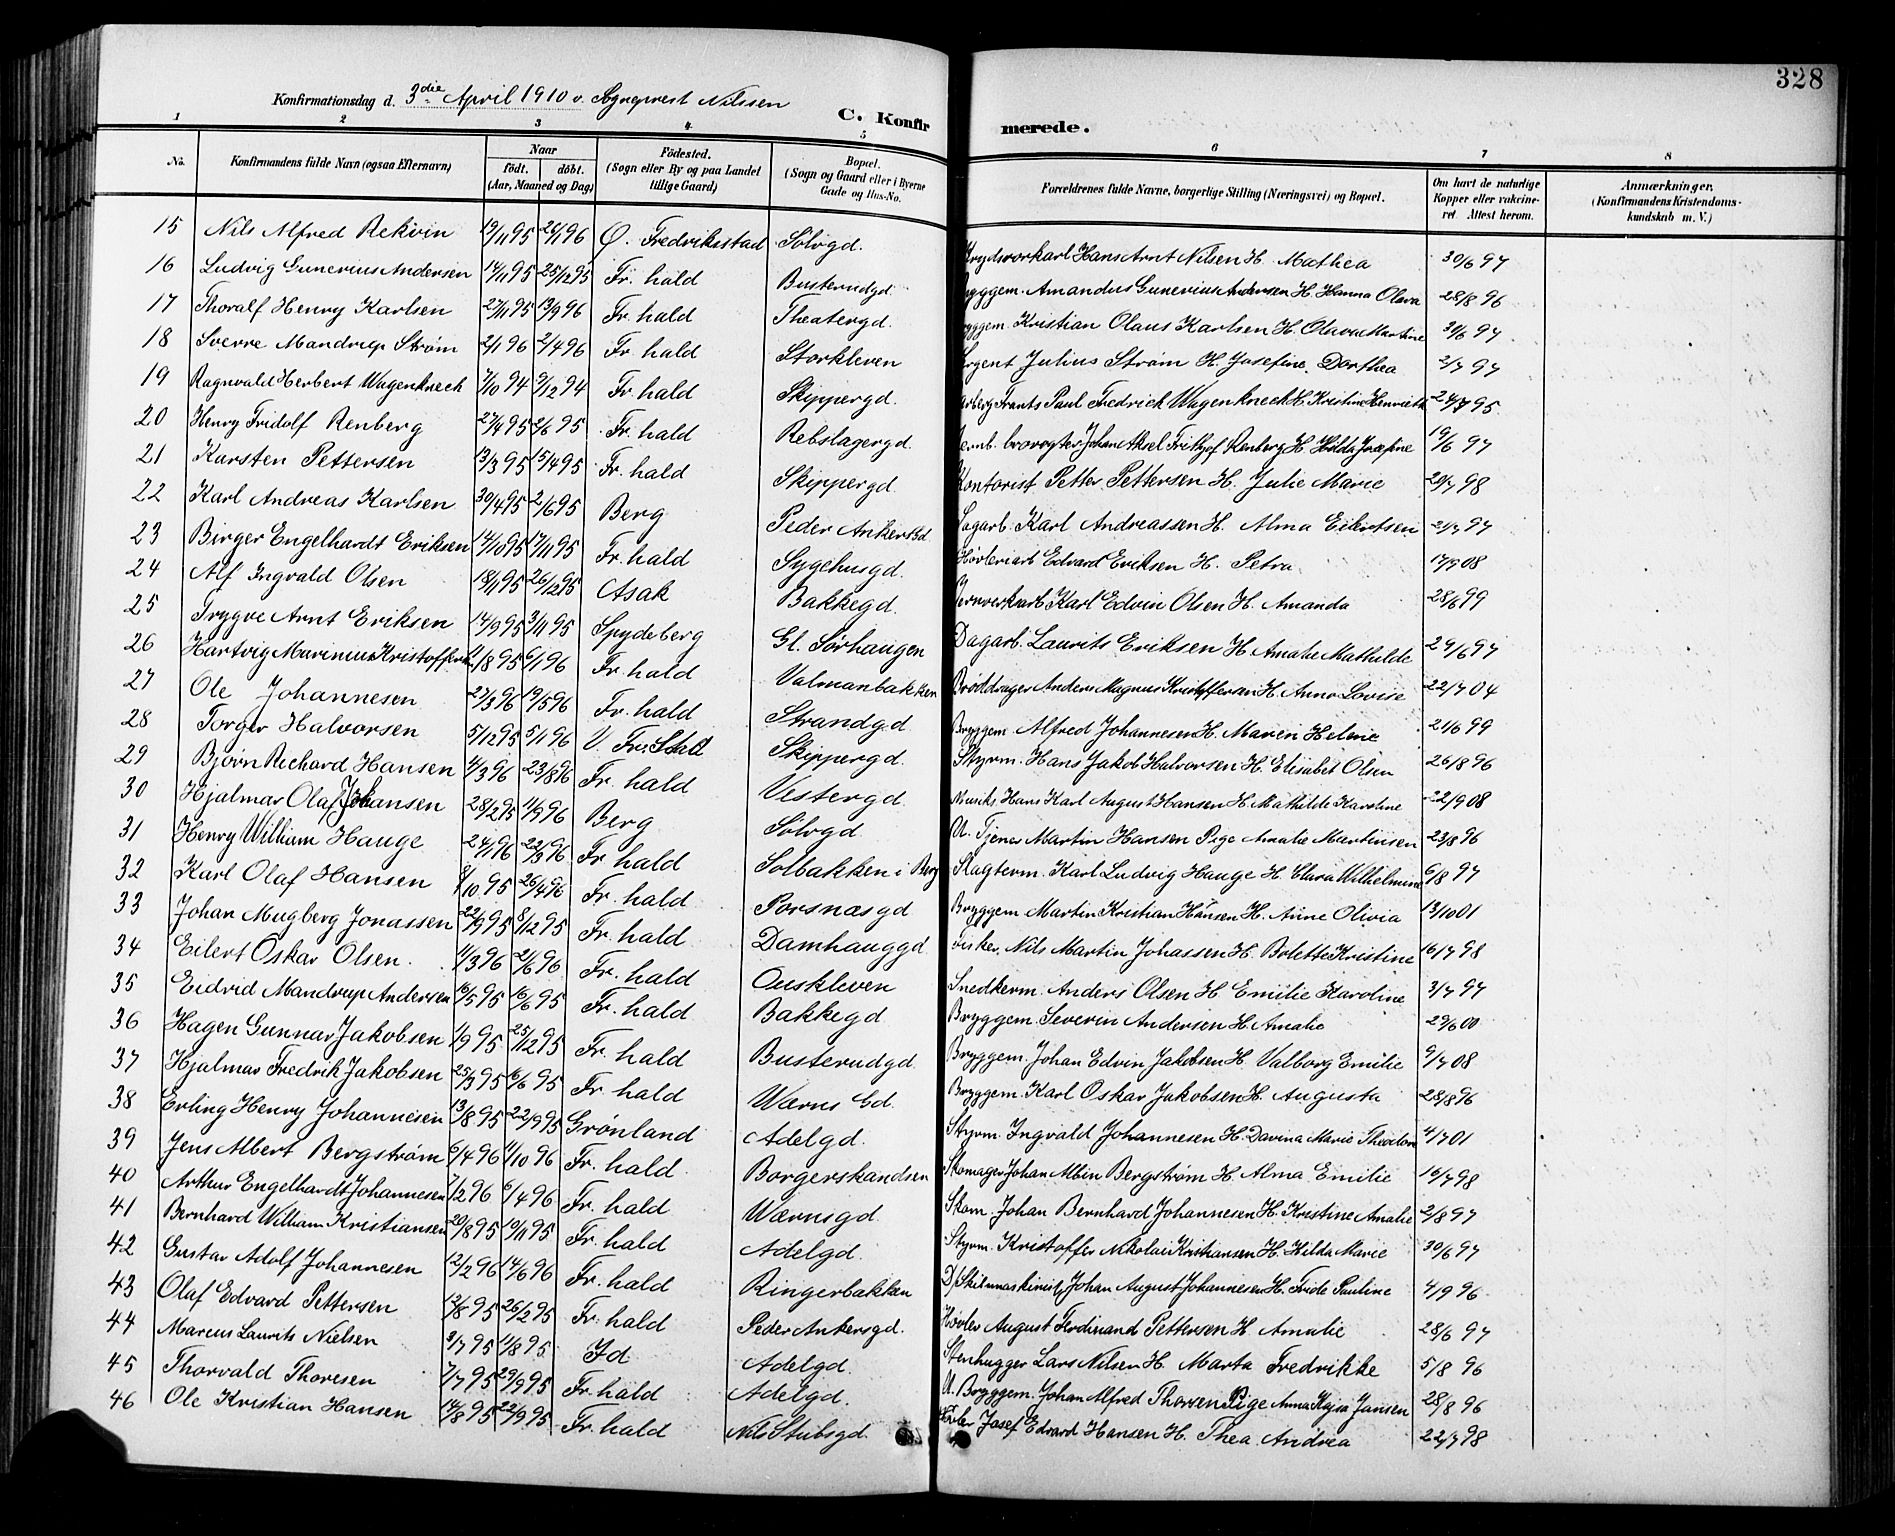 328
Konfirmationsdag d. 3die April 1910 v. Sogneprest Nilssen
C. Konfirmerede.
1 2 3 4 5 6 7 8
No. Konfirmandens fulde Navn (ogsaa Efternavn) Naar födt. döbt. (Aar, Maaned og Dag) Födested. (Sogn eller By og paa Landet tillige Gaard) Bopæl. (Sogn og Gaard eller i Byerne Gade og Hus-No. Forældrenes fulde Navne, borgerlige Stilling (Næringsvei) og Bopæl. Om havt de naturlige Kopper eller vakcineret. Attest herom. Anmærkninger, (Konfirmandens Kristendomskundskab m. V.)
15 Nils Alfred Rekvin 19/11 95 26/1 96 Ø. Fredriksstad Sølvgd. Hans Arnt Nilsen H. Mathea 30/6 97
16 Ludvig Gunerius Andersen 14/11 95 25/12 95 Fr. hald Busterudgd. Bryggem. Amandus Gunerius Andersen H. Hanna Olava 28/8 96
17 Thoralf Henry Karlsen 27/11 95 13/9 96 Fr. hald Theatergd. Bryggem. Kristian Olaus Karlsen H. Olava Martine 30/6 97
18 Sverre Mandrup Strøm 2/1 96 2/4 96 Fr. hald Storkleven Sergent Julius Strøm H. Josefine Dorthea 2/7 97
19 Ragnvald Herbert Wagenknech 7/10 94 9/12 94 Fr. hald Skippergd. Frants Paul Fredrick Wagenknech H. Kristine Henriette 24/7 95
20 Henry Fridolf Renberg 27/4 95 2/6 95 Fr. hald Rebslagergd. Jernb. brovogter Johan Aksel Frithjof Renberg H. Hilda Josefine 19/6 97
21 Karsten Pettersen 13/3 95 15/4 95 Fr. hald Skippergd. Kontorist Petter Pettersen H. Julie Marie 20/7 98
22 Karl Andreas Karlsen 30/4 95 2/6 95 Berg Peder Ankersgd. Sagarb. Karl Andreassen H. Alma Eilertsen 21/7 97
23 Birger Engelhardt Eriksen 14/10 95 17/11 95 Fr. hald Sygehusgd. Høvleriarb Edvard Eriksen H. Petra 17/9 08
24 Alf Ingvald Olsen 18/1 95 26/12 95 Asak Bakkegd. Jernverksarb. Karl Edvin Olsen H. Amanda 28/6 99
25 Trygve Arnt Eriksen 14/9 95 3/11 95 Spydeberg Gl. Sørhaugen Dagarb. Laurits Eriksen H. Amalie Mathilde 29/6 97
26 Hartvig Marinius Kristoffersen /8 95 6/1 96 Fr. hald Valmanbakken Brøddrager Anders Magnus Kristoffersen H. Anna Lovise 22/7 04
27 Ole Johannesen 27/3 96 19/5 96 Fr. hald Strandgd. Bryggem. Alfred Johannesen H. Maren Helene 21/6 99
28 Torger Halvorsen 5/12 95 5/1 96 V. Fr. Stad Skippergd. Styrm. Hans Jakob Halvorsen H. Elisabet Olsen 26/8 96
29 Bjørn Richard Hansen 4/3 96 23/8 96 Fr. hald Vestergd. Musiks. Hans Karl August Hansen H. Mathilde Karoline 22/9 08
30 Hjalmar Olaf Johansen 28/2 95 1/9 96 Berg Sølvgd. U. Tjener Martin Hansen Pige Amalie Martinsen 23/8 96
31 Henry William Hauge 24/1 96 22/3 96 Fr. hald Solbakken i Berg Slagterm. Karl Ludvig Hauge H. Clara Wilhelmine 6/8 97
32 Karl Olaf Hansen 8/10 95 26/4 96 Fr. hald Porsnæsgd Bryggem. Martin Kristian Hansen H. Anne Olivia 13/10 01
33 Johan Mugberg Jonassen 22/9 95 8/12 95 Fr. hald Damhauggd Fisker Nils Martin Johassen H. Bolette Kristine 16/7 98
34 Eilert Oskar Olsen 11/3 96 21/6 96 Fr. hald Ouskleven Snedkerm. Anders Olsen H. Emilie Karoline 3/7 97
35 Eidvid Mandrup Andersen 16/5 95 16/6 95 Fr. hald Bakkegd Bryggem. Severin Andersen H. Amalie 29/6 00
36 Hagen Gunnar Jakobsen 1/9 95 25/12 95 Fr. hald Busterudgd. Bryggem. Johan Edvin Jakobsen H. Valborg Emilie 9/7 08
37 Hjalmar Fredrik Jakobsen 25/3 95 6/6 95 Fr. hald Wærns Gd. Bryggem. Karl Oskar Jakobsen H. Augusta 28/8 96
38 Erling Henry Johannesen 13/8 95 22/9 95 Grønland Adelgd. Styrm. Ingvald Johannesen H. Davina Marie Theodora 4/7 01
39 Jens Albert Bergstrøm 6/4 96 11/10 96 Fr. hald Borgerskandsen Skomager Johan Albin Bergstrøm H. Alma Emilie 16/7 98
40 Arthur Engelhardt Johannesen 7/2 96 6/4 96 Fr. hald Wærnsgd. Skom. Johan Bernhard Johannesen H. Kristine Amalie 2/8 97
41 Bernhard William Kristiansen 20/8 95 10/11 95 Fr. hald Adelgd. Styrm. Kristoffer Nikolai Kristiansen H. Hilda Marie 30/6 97
42 Gustav Adolf Johannesen 12/2 96 14/6 96 Fr. hald Ringerbakken D/Skibsmaskinist Johan August Johannesen H. Frida Pauline 4/9 96
43 Olaf Edvard Pettersen 12/8 95 26/12 95 Fr. hald Peder Ankersgd. Høvler August Ferdinand Pettersen H. Amalie 28/6 97
44 Marcus Laurits Nielsen 3/7 95 11/8 95 Id Adelgd. Stenhugger Lars Nilsen H. Marta Fredrikke 5/8 96
45 Thorvald Thoresen 7/7 95 29/9 95 Fr. hald Adelgd. U. Bryggem. Johan Alfred Thoresen Pige Anna Kajsa Jansen 28/8 96
46 Ole Kristian Hansen 14/8 95 22/9 95 Fr. hald Nils Stubsgd. Høvler Josef Edvard Hansen H. Thea Andrea 22/7 98